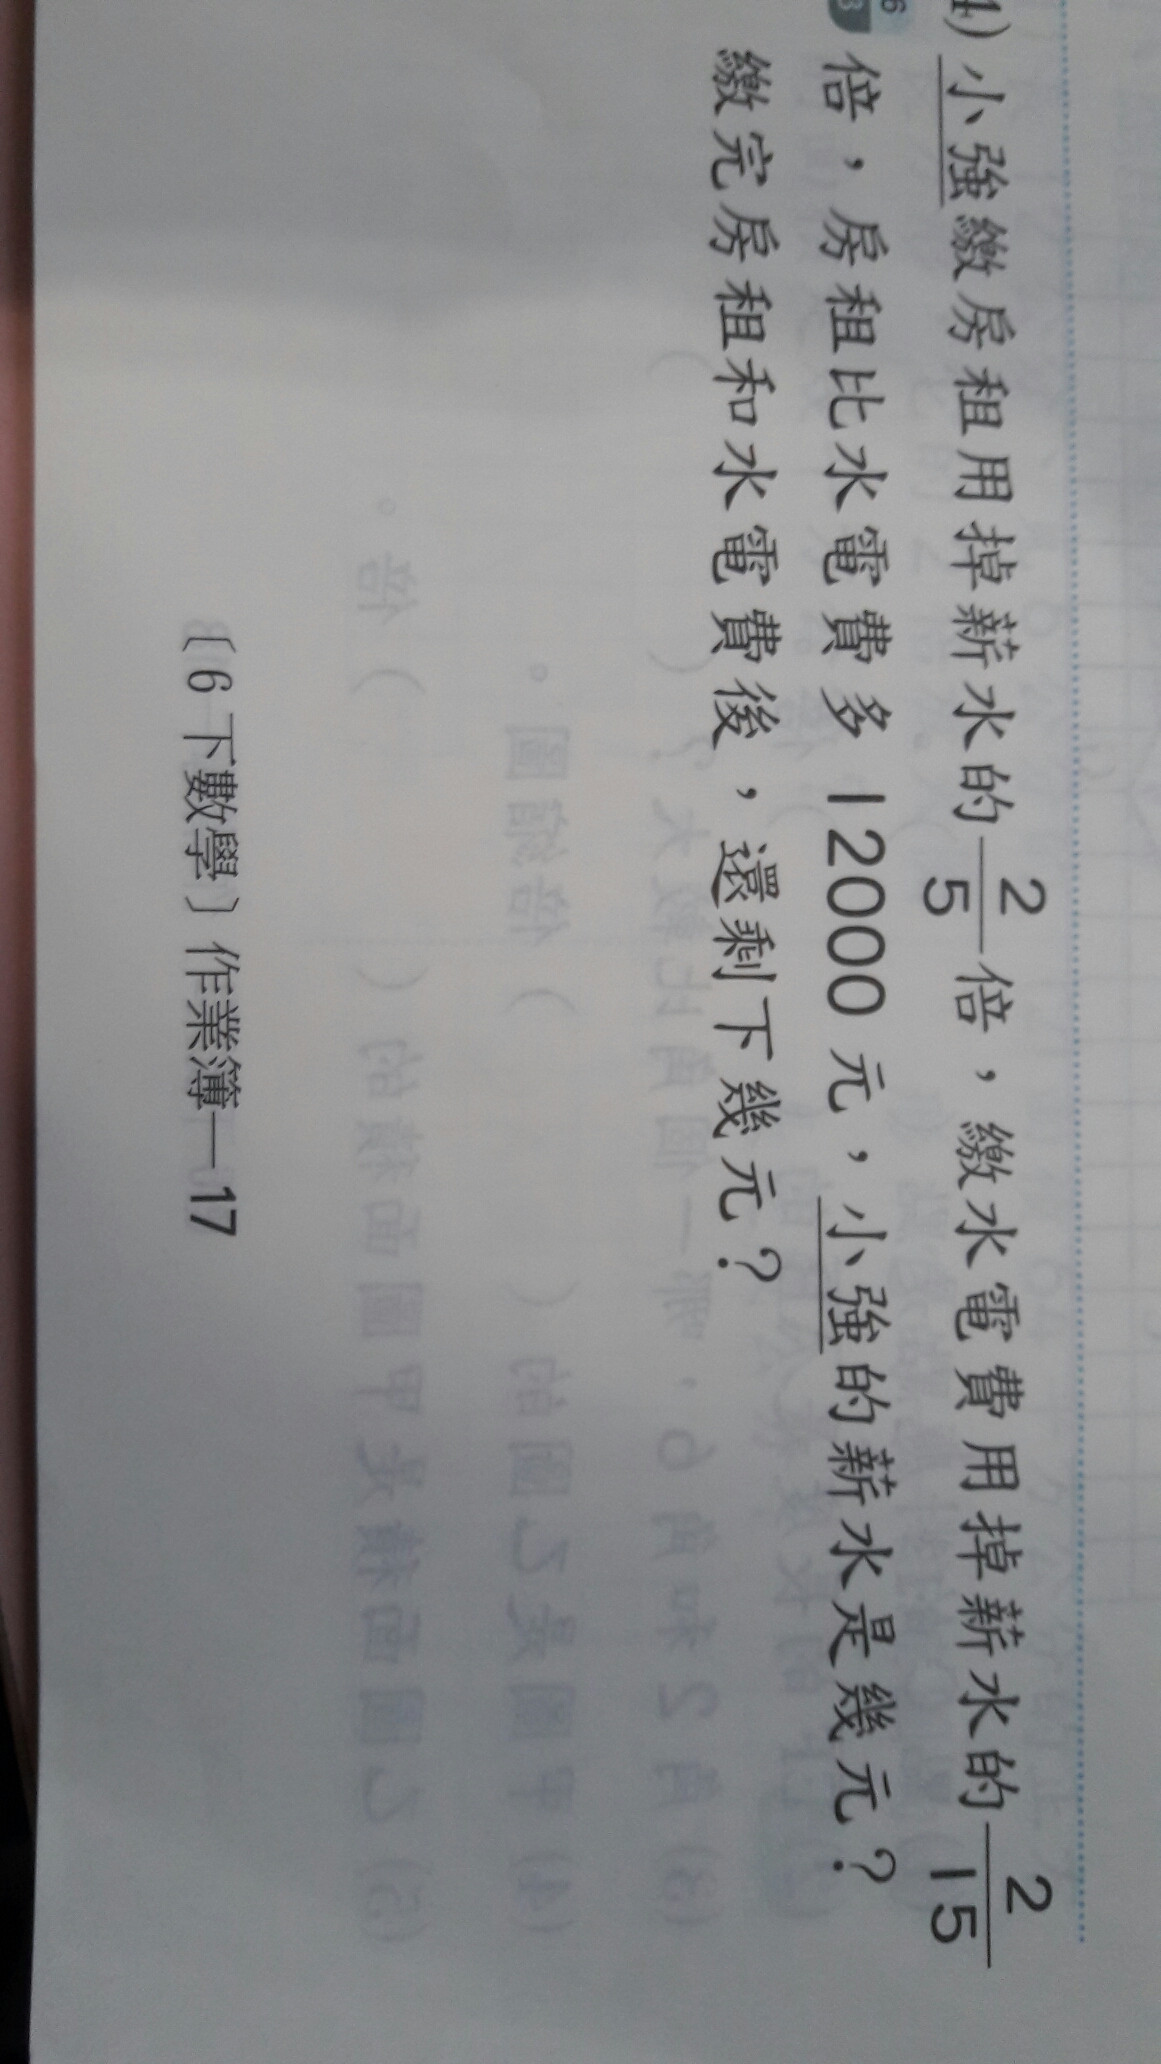 4) 小強繳房租用掉薪水的 2/5 倍，繳水電費用掉薪水的 2/15
倍，房租比水電費多 12000 元，小強的薪水是幾元？
繳完房租和水電費後，還剩下幾元？
〔6 下數學〕作業簿—17